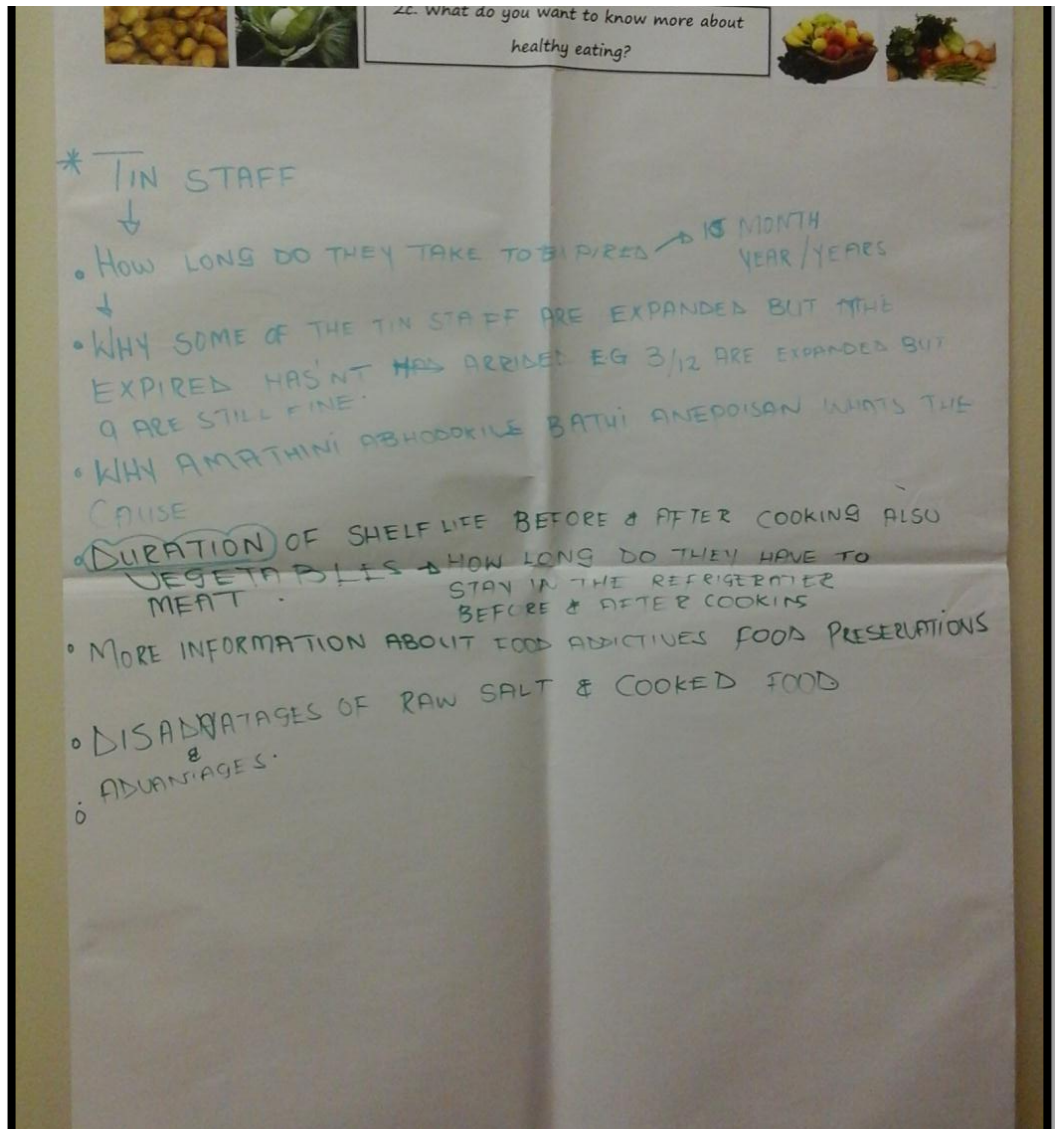 2c. What do you want to know more about
healthy eating?
* TIN STAFF
• HOW LONG DO THEY TAKE TO → MONTH
YEAR/YEARS
• WHY SOME OF THE TIN STAFF ARE EXPANDED BUT THE
EXPIRED HAS'NT HAS ARRIDED EG 3/12 ARE EXPANDED BUT
9 ARE STILL FINE.
• WHY AMATHINI ABHODOKILE BATHI ANEPOISAN WHATS THE
CAUSE
• DURATION OF SHELF LIFE BEFORE & AFTER COOKING ALSO
VEGETABLES → HOW LONG DO THEY HAVE TO
MEAT. STAY IN THE REFRIGERATER
BEFORE & AFTER COOKING
• MORE INFORMATION ABOUT FOOD ADDICTIVES FOOD PRESERVATIONS
• DISADVATAGES OF RAW SALT & COOKED FOOD
&
ADVANTAGES.